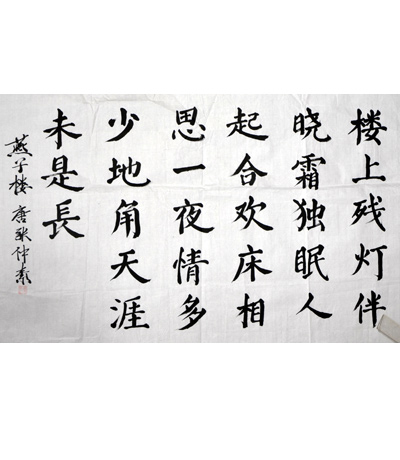 楼上残灯伴
晓霜独眠人
起合欢床相
思一夜情多
少地角天涯
未是長
燕子楼 唐 张仲素